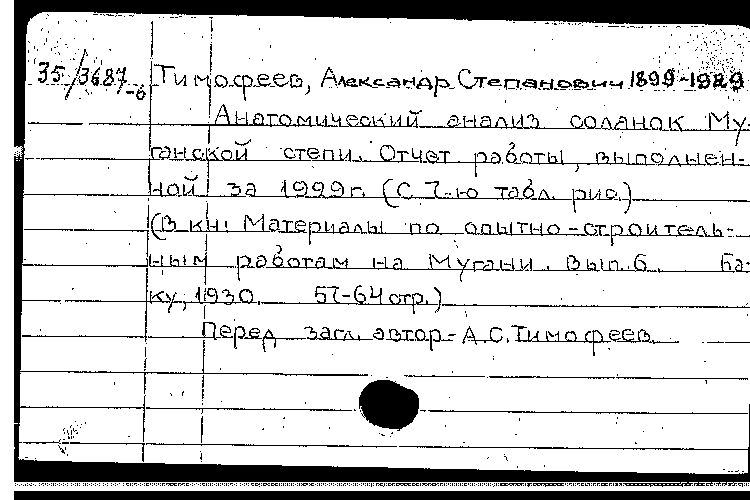 35/3687-б Тимофеев, Александр Степанович 1899-1989
Анатомический анализ солянок Му-
ганской степи. Отчет работы, выполнен-
ной за 1929г. (С 7-ю табл. рис.)
(В кн: Материалы по опытно-строитель-
ным работам на Мугани. Вып. 6. Ба-
ку, 1930. 57-64 стр.)
Перед загл. автор - А.С. Тимофеев.